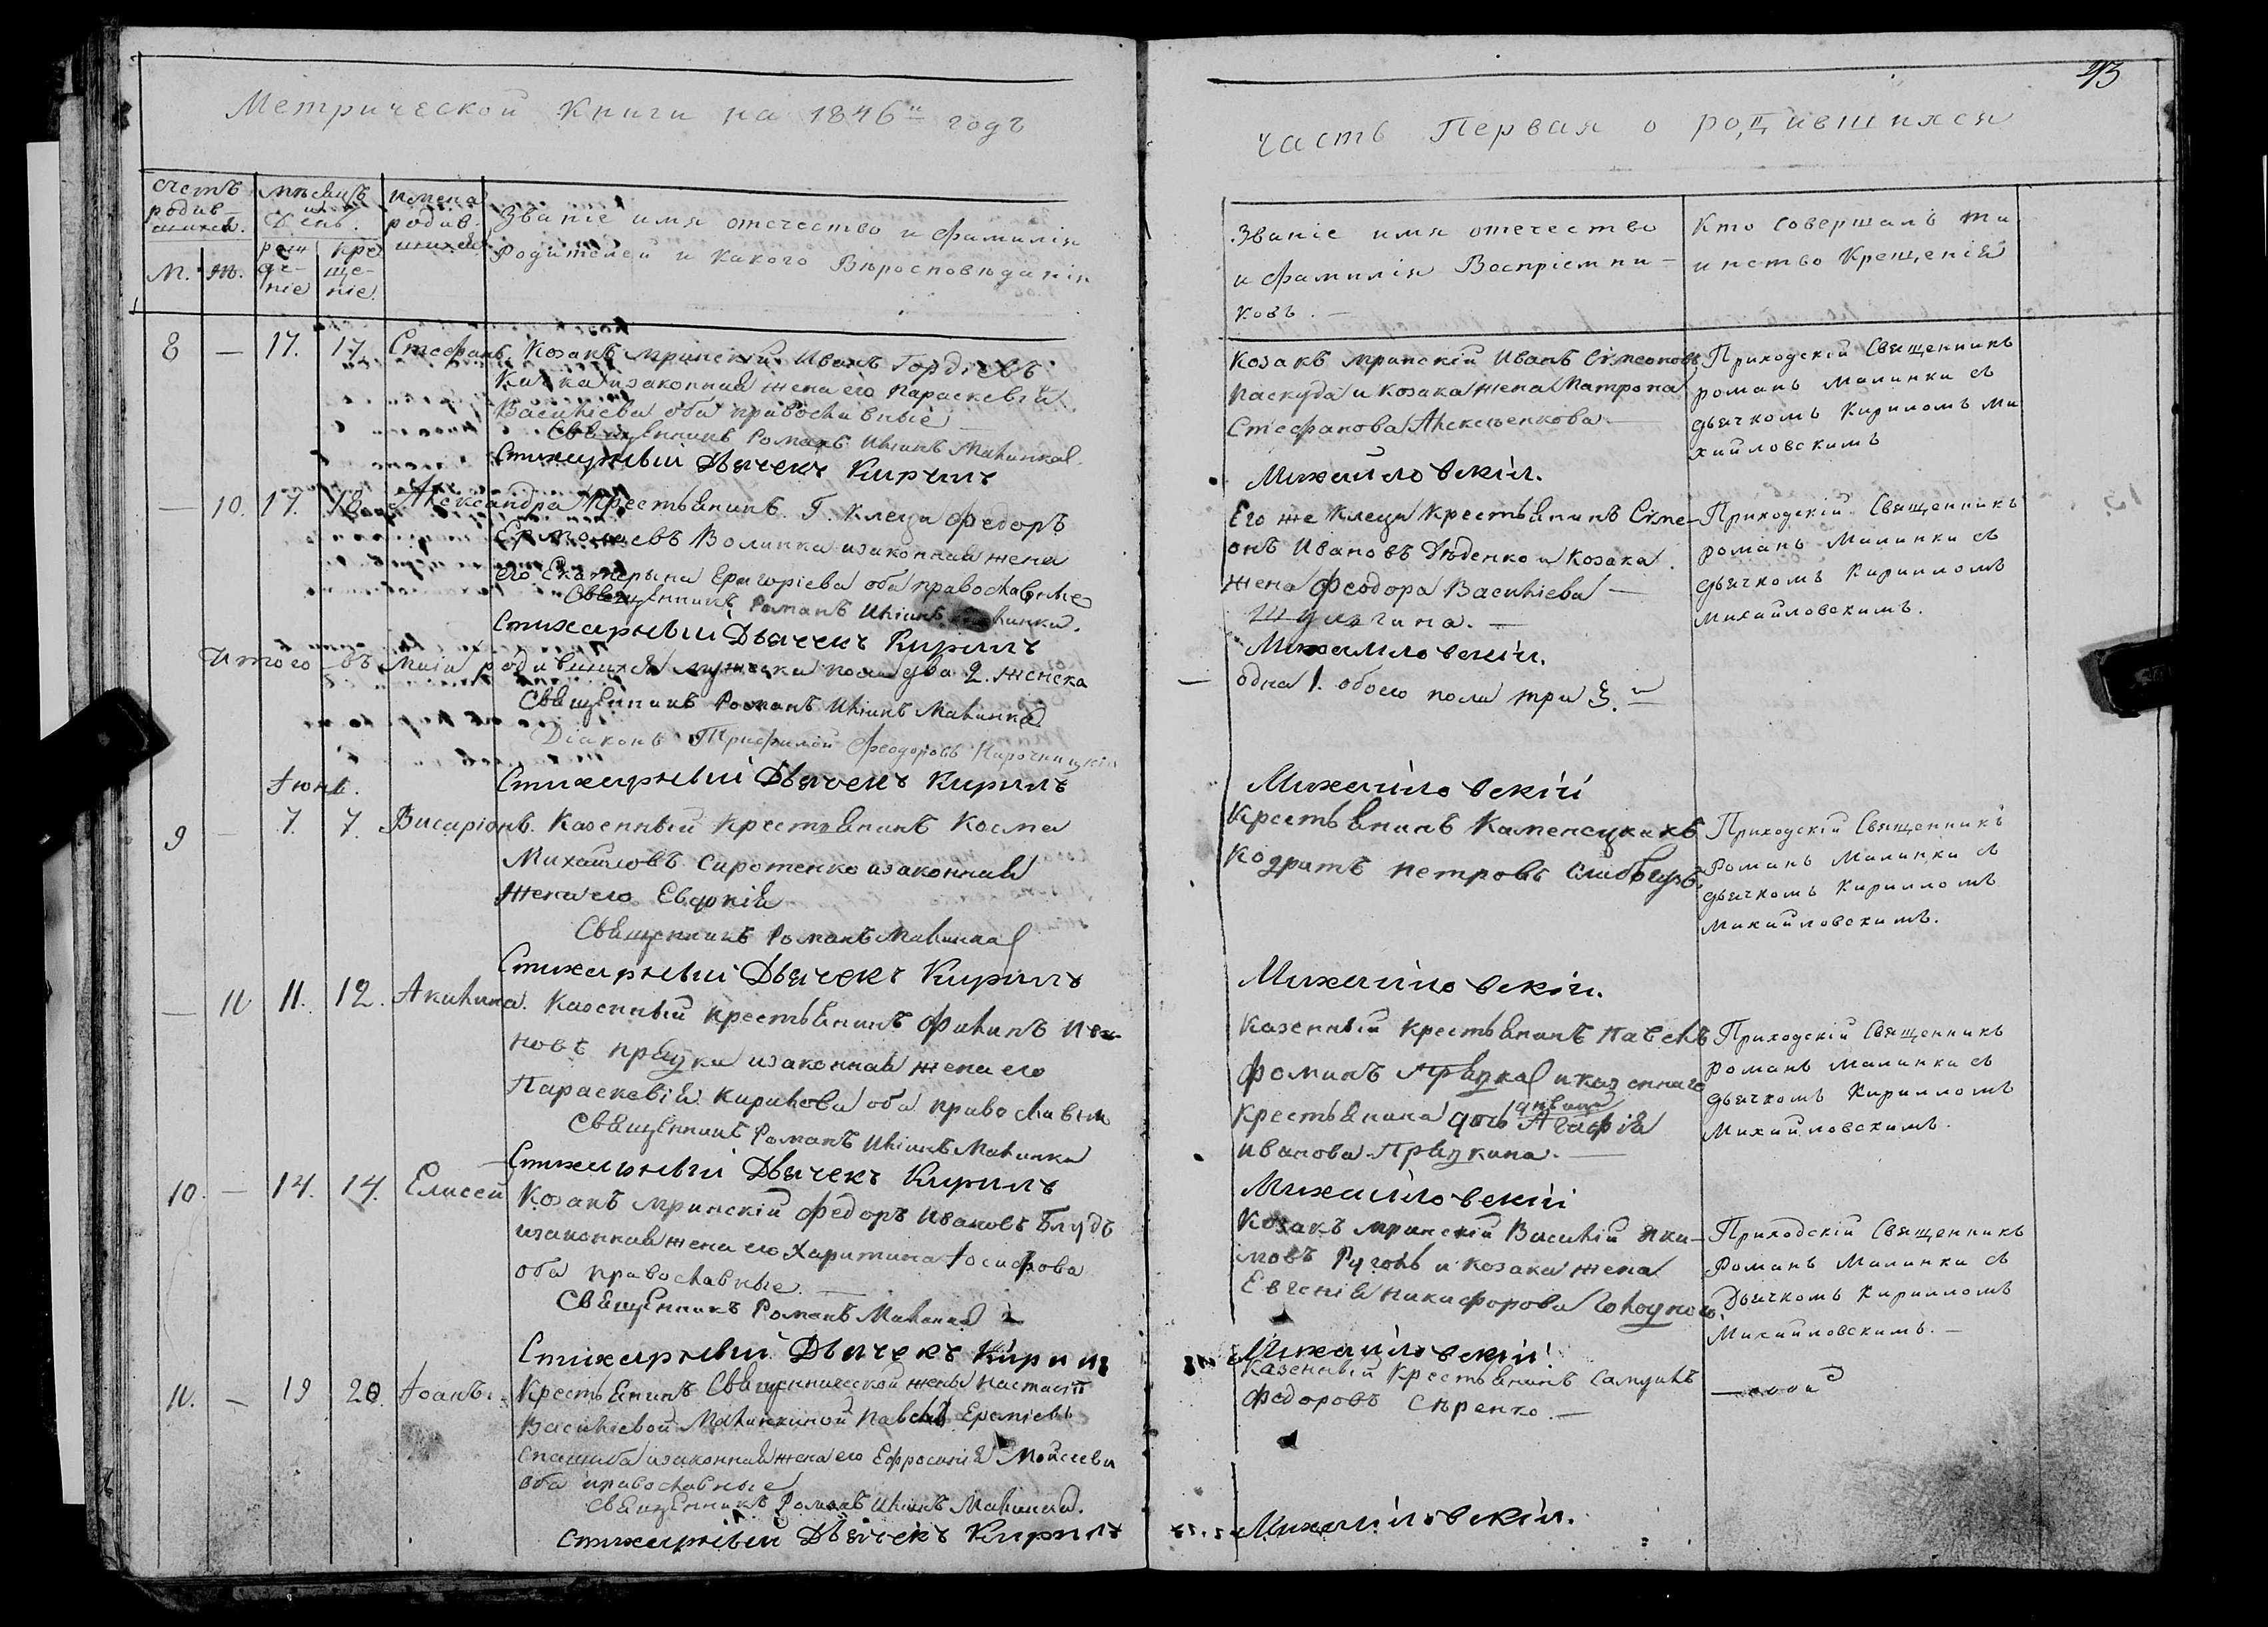 43
Метрической Книги на 1846й годъ
часть Первая о родившихся
Счетъ родив шихся.
М. Ж.
Мѣсяцъ и День.
рож де- ніе
кре ще- ніе.
Имена родив шихся
Званіе имя отечество и фамилія
Родителей и какого Вѣроисповѣданія
Званіе имя отечество
и фамилія Воспріемни-
ковъ. —
Кто совершалъ та
инство Крещенія
8 — 17. 17. Стефанъ. Козакъ мринскій Иванъ Гордіевъ
изаконная жена его Параскевія
Василіева оба православные
Священникъ Романъ Малинка
Стихарный Дьячекъ Кирилъ
Козакъ мринскій Иванъ Сѵмеоновъ
Паскуда и Козака жена Матрона
Стефанова
Михайловскій.
Приходскій Священникъ
романъ Малинка съ
дьячкомъ Кириломъ Ми
хайловскимъ
— 10. 17. 18. Александра Крестьянинъ Г. Клеци Федоръ
Ермолаевъ Волинка изаконная жена
его Екатерына Григоріева оба православные
Священникъ Романъ
Стихарный Дьячекъ Кирилъ
Его же Клеци Крестьянинъ Сѵме-
онъ Ивановъ Дѣденко и Козака
жена Феодора Василіева —
Михайловскій.
Приходскій Священникъ
романъ Малинка съ
дьячкомъ Кирилломъ
михайловскимъ.
Итого въ маіи родившихся мужеска пола два 2. женска
— одна 1. обоего пола три 3. —
Священникъ Романъ Малинка
Діаконъ Феодоровъ
Стихарный Дьячекъ Кирилъ
Михайловскій
Іюнь.
9 — 7. 7. Висаріонъ. Казенный Крестьянинъ Косма
Михайловъ Сиротенко изаконная
жена его Евдокія
Священникъ Романъ Малинка
Стихарный Дьячекъ Кирилъ
Крестьянинъ
Кодратъ Петровъ
Михайловскій.
Приходскій Священникъ
Романъ Малинка съ
дьячкомъ Кирилломъ
михайловскимъ.
— 11 11. 12. Акилина. Казенный крестьянинъ Филипъ Ива
новъ Прыцка изаконная жена его
Параскевія Кирилова оба православны
Священникъ Романъ Малинка
Стихарный Дьячекъ Кирилъ
Казенный Крестьянинъ Павелъ
Фоминъ Прыцка и казеннаго
крестьянина дочь дѣвица Агафія
Иванова Прыцкина. —
Михайловскій
Приходскій Священникъ
романъ малинка съ
дьячкомъ Кирилломъ
Михайловскимъ.
10. — 14. 14. Елисей Козакъ мринскій Федоръ Ивановъ Блудъ
изаконная жена его Харитина Іосифова
оба православные. —
Священникъ Романъ Малинка
Стихарный Дьячекъ Кирилъ
Козакъ мринскій Василій Яки-
мовъ и козака жена
Евгенія Никифорова
Михайловскій.
Приходскій Священникъ
Романъ Малинка съ
Дьячкомъ Кирилломъ
Михайловскимъ. —
11. — 19 20. Іоанъ. Крестьянинъ Священнической жены Настасіи
Василіевой Малинкиной Павелъ Ереміевъ
изаконная жена его Ефросинія Мойсеева
оба православные
Священникъ Романъ Малинка.
Стихарный Дьячекъ Кирилъ
Казенный Крестьянинъ Самуилъ
Федоровъ Сѣренко. —
Михайловскій.